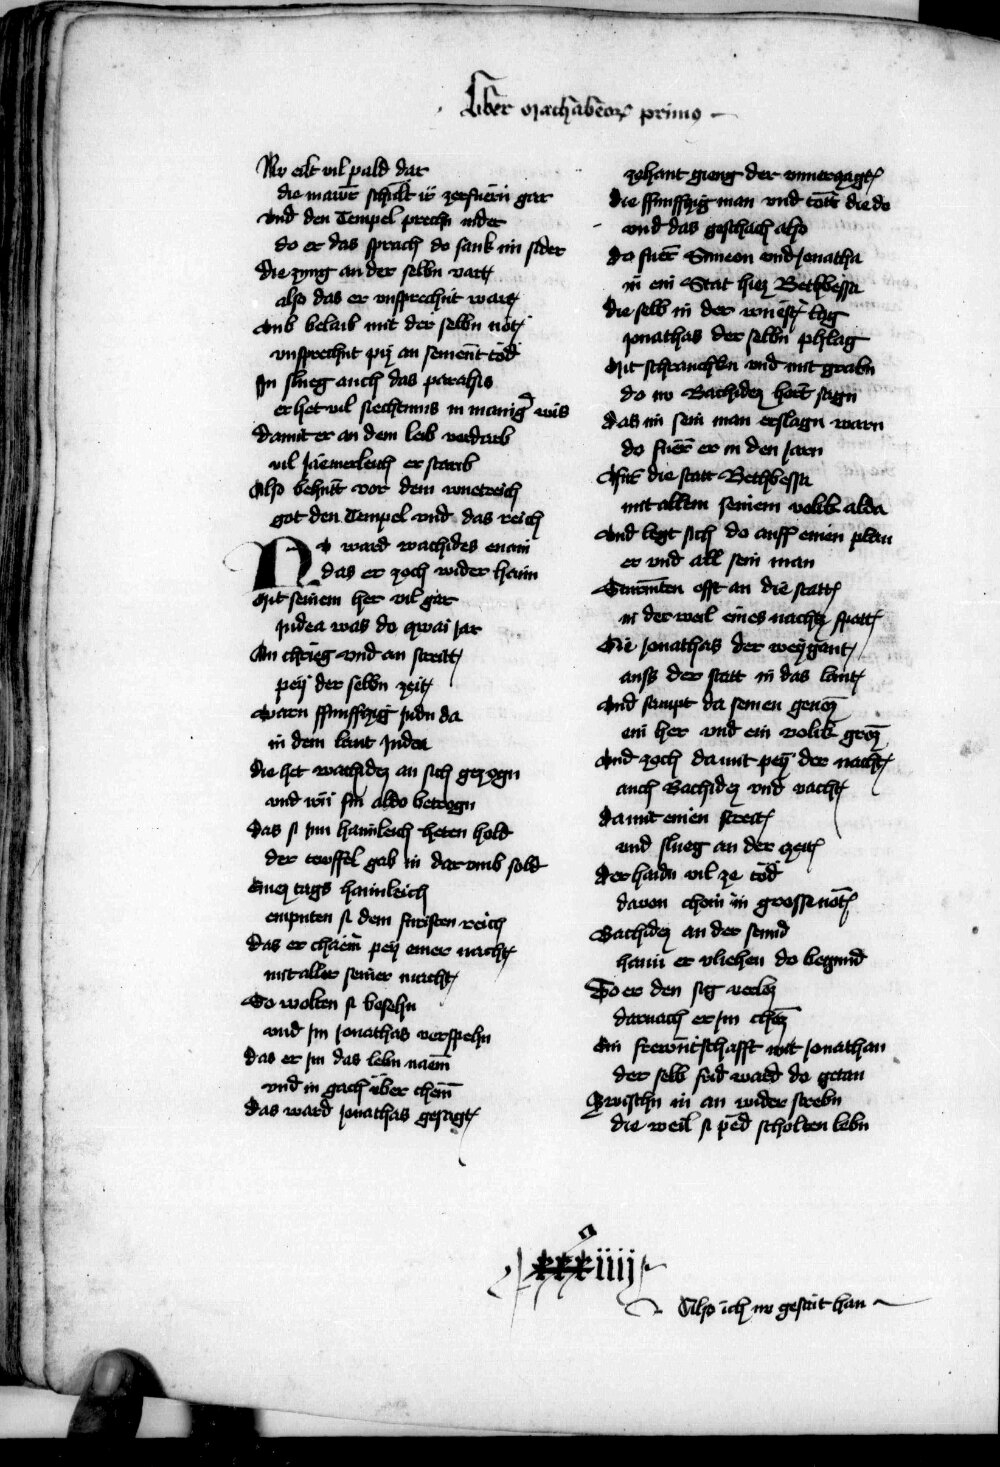 Liber Machabeor primo
Nu eilt vil pald dar
die mawr schult ir zerfuern gar
vnd den Tempel prechn nider
do er das sprach do sank im sider
die zung an der selbn vart
also das er vnsprechnt wart
vnd belaib mit der selbn not
vnsprechnt piz an seinent tod
In slueg auch das paralis
er het vil siechtums in manig wis
damit er an dem leib verdarb
vil jaemerleich er starib
Also behutt vor dem wuetreich
got den Tempel vnd das reich
Nv ward wachides enain
das er zoch wider haim
Mit seinem her vil gar
Judea was do zwai jar
An chrieg vnd an streitt
peÿ der selbn zeit
warn ffunffzig Judn da
in dem lant Judea
die het wachidez an sich gezogn
vnd mit sin aldo betrogn
das si im haimleich heten hold
der tewffel gab in dar vmb sold
Ainez tags haimleich
emputen si dem fursten reich
das er chaem peÿ einer nacht
mit aller seiner macht
So wolten si besehn
vnd im Jonathas verspehn
das er im das lebn naem
vnd in gach über chem
das ward Jonathas gesagt
zehant gieng der vnuerzagt
die ffunffzig man vnd tott die do
vnd das geschach also
do fuer Simeon vnd Jonatha
in ein Stat hiez Bethbessa
die selb in der wuest lag
Jonathas der selbn phlag
Mit schranchkn vnd mit grabn
do nv Bachidez hort sagn
das im sein man erslagn warn
do fuer er in den jarn
fur die statt Bethbessa
mit allem seinem volkk alda
vnd legt sich do auff einen plan
er vnd all sein man
Sturmten offt an die statt
in der weil eines nachtz spatt
Die Jonathas der weygant
auss der statt in das lant
vnd sampt da seinen genoz
ein her vnd ein volkk groz
vnd zoch da mit peÿ der nacht
auch Bachidez vnd vacht
da mit einen streit
vnd slueg an der zeit
der haidn vil ze tod
dauon chom in grosse not
Bachidez an der stund
haim er vliehen do begund
So er den sig verloz
darnach er im choz
Ain frewntschafft mit Jonathan
der selb frid ward do getan
Zwischn in an wider strebn
die weil si ped scholten lebn
xxxiiij
Also ich nv gesait han